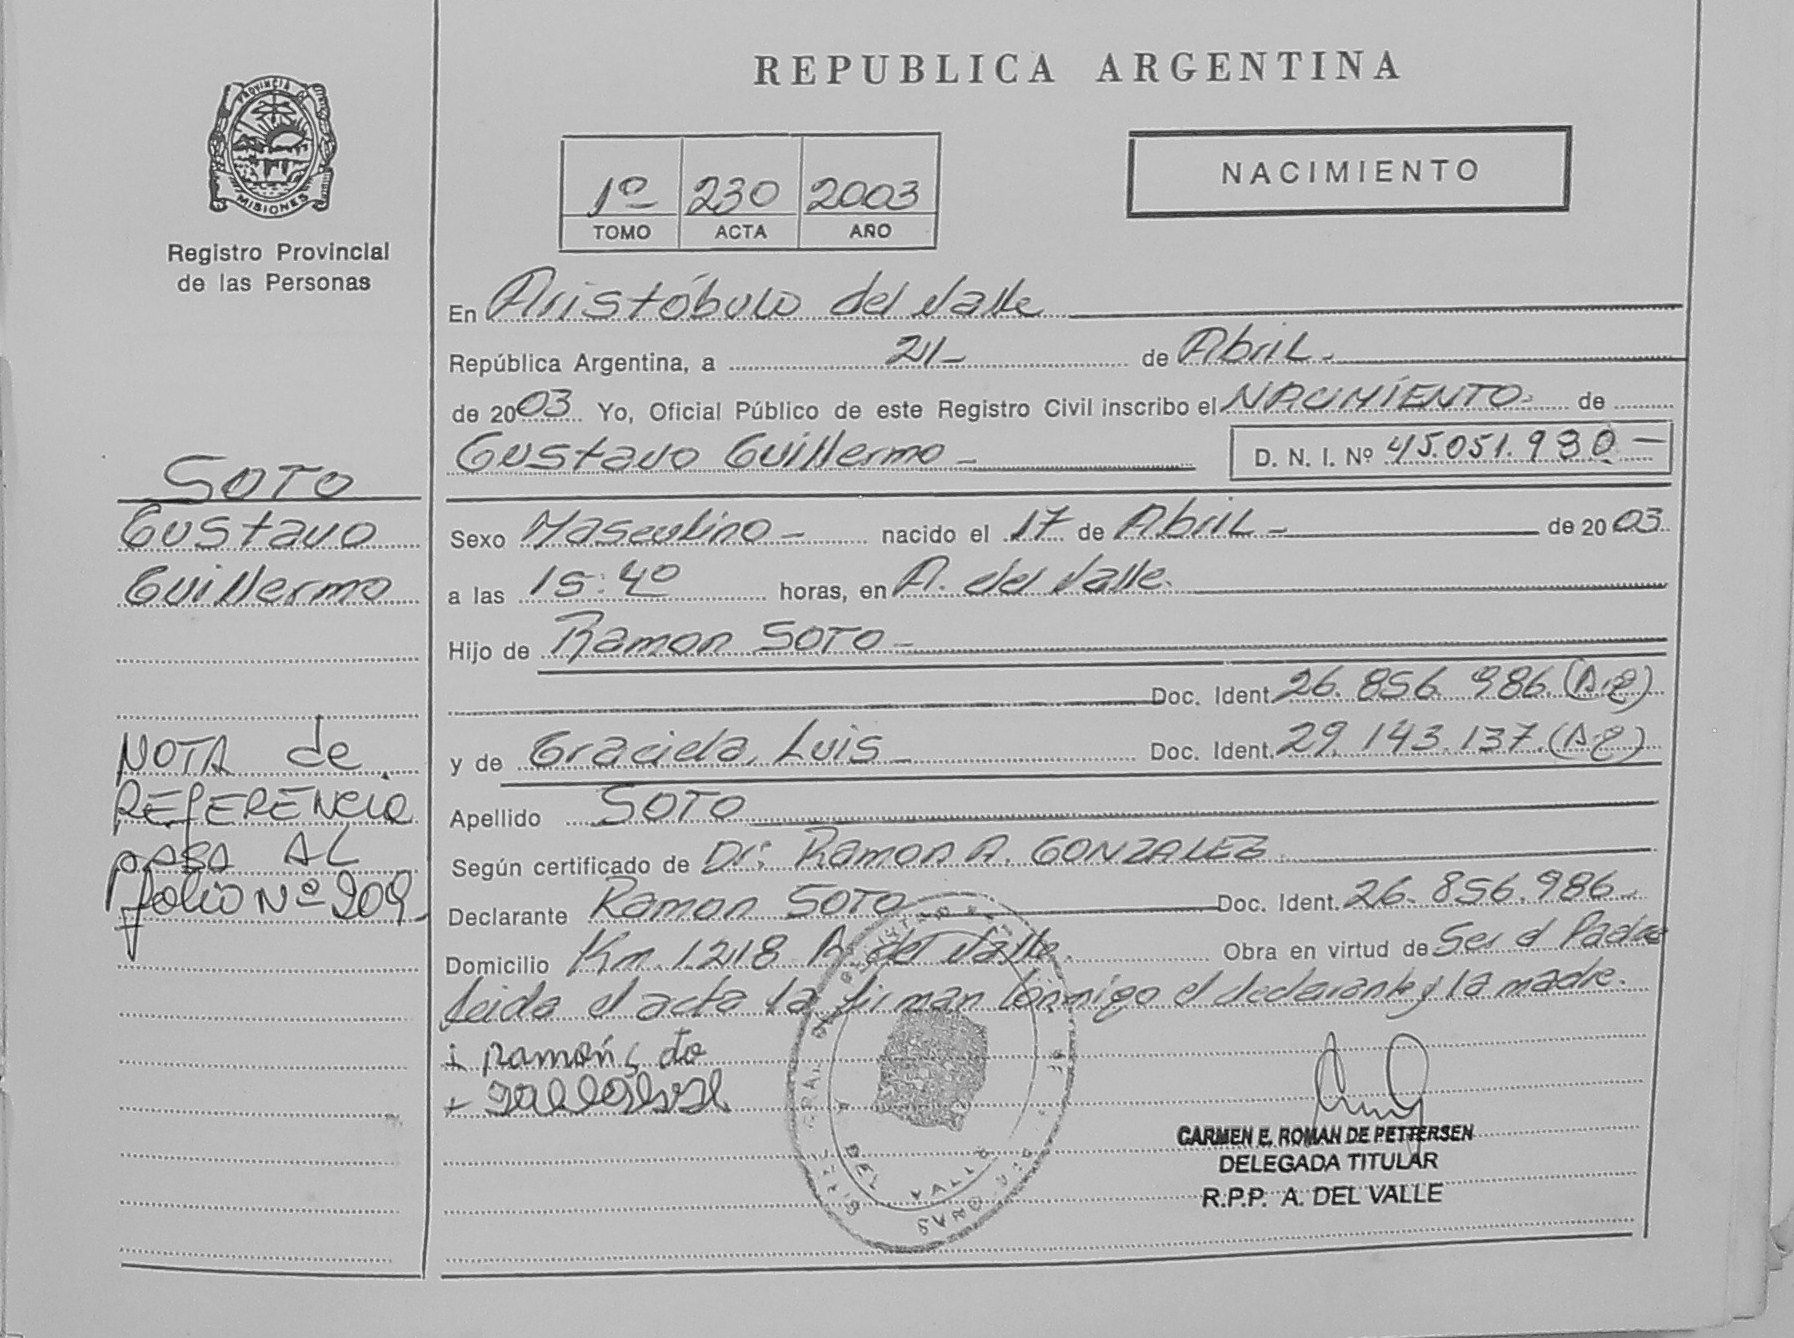 REPUBLICA ARGENTINA
PROVINCIA DE
MISIONES
Registro Provincial
de las Personas
1º 230 2003
TOMO ACTA AÑO
NACIMIENTO
En Aristóbulo del Valle
República Argentina, a 21 de Abril
de 2003 Yo, Oficial Público de este Registro Civil inscribo el NACIMIENTO de
Gustavo Guillermo D. N. I. Nº 45.051.930
Sexo Masculino nacido el 17 de Abril de 2003
a las 15:40 horas, en A. del Valle.
Hijo de Ramon SOTO
Doc. Ident. 26.856.986. (Arg)
y de Graciela, Luis Doc. Ident. 29.143.137. (Arg)
Apellido SOTO
Según certificado de Dr: Ramon A. GONZALEZ
Declarante Ramon SOTO Doc. Ident. 26.856.986.
Domicilio Km 1218 A. del Valle. Obra en virtud de Ser el Padre
Leida el acta la firman conmigo el declarante y la madre.
Ramón
CARMEN E. ROMAN DE PETTERSEN
DELEGADA TITULAR
R.P.P. A. DEL VALLE
DEL VALLE
SOTO
Gustavo
Guillermo
NOTA de
REFERENCIA
PASA AL
folio Nº 209